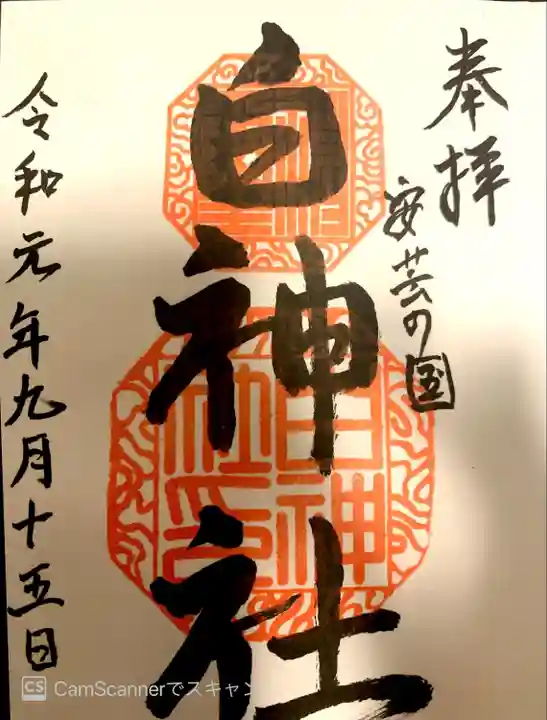 奉拝
安芸の国
白神社
令和元年九月十五日
白神
社印
CS CamScannerでスキャン